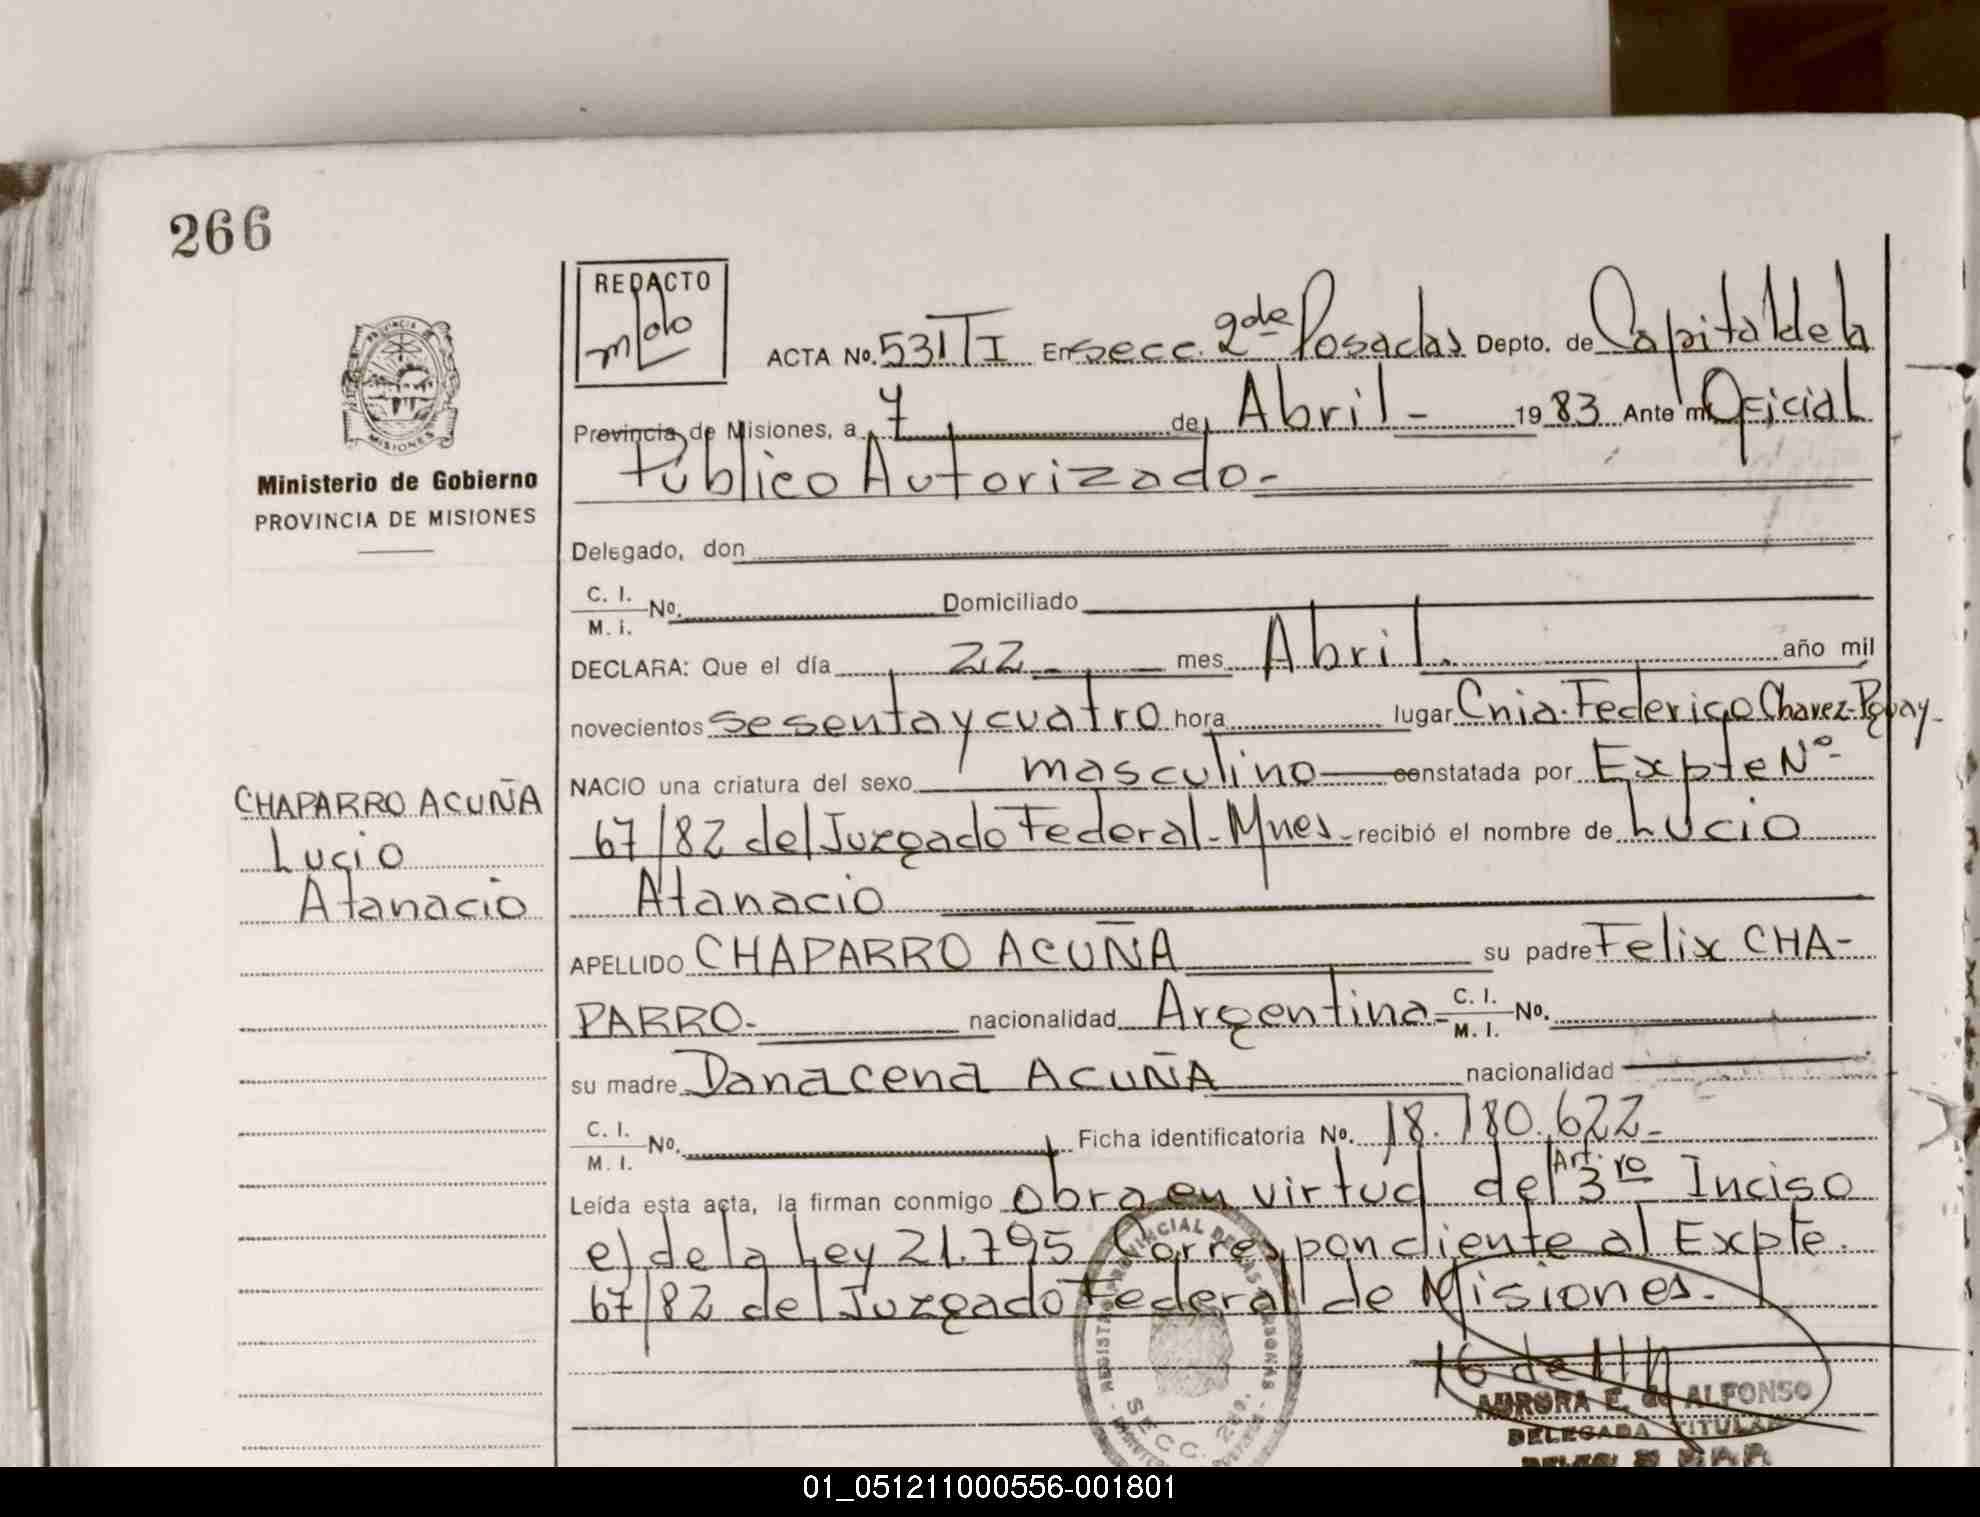 266
REDACTO
ACTA No. 531 T I En secc. 2da de Posadas Depto. de Capital de la
Provincia de Misiones, a 7 de Abril - 1983 Ante mi Oficial
Público Autorizado -
PROVINCIA
MISIONES
Ministerio de Gobierno
PROVINCIA DE MISIONES
Delegado, don
C. I. M. I. No. Domiciliado
DECLARA: Que el día 22 - mes Abril. año mil
novecientos sesenta y cuatro hora lugar Cnia. Federico Chavez-Pguay-
NACIO una criatura del sexo masculino constatada por Expte Nº
CHAPARRO ACUÑA
Lucio
Atanacio
67/82 del Juzgado Federal - Mnes - recibió el nombre de Lucio
Atanacio
APELLIDO CHAPARRO ACUÑA su padre Felix CHA-
PARRO - nacionalidad Argentina - C. I. M. I. No.
su madre Danacena ACUÑA nacionalidad
C. I. M. I. No. Ficha identificatoria No. 18.180.622-
Leída esta acta, la firman conmigo obra en virtud del Art. 3ro Inciso
e) de la Ley 21.795 Correspondiente al Expte.
67/82 del Juzgado Federal de Misiones.
SECC. 2da.
AURORA E. de ALFONSO
DELEGADA TITULAR
01_051211000556-001801